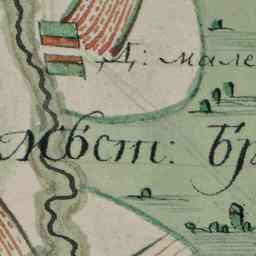 Д: мале
мѣст: бр